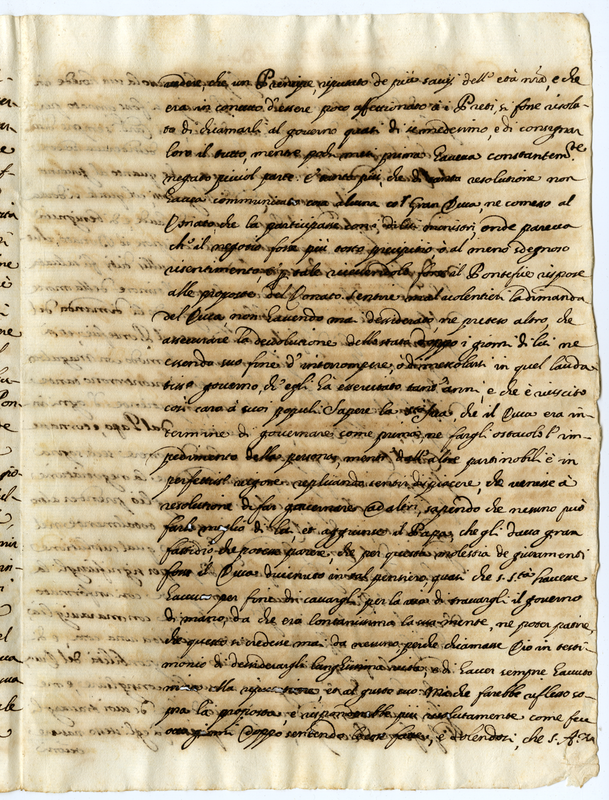 vedere, che un Prencipe, riputato de più savij dell' età nrã, e che
era in concetto d'essere poco affettionato à i Preti si fosse risolu-
to di chiamarli al governo quasi di se medesimo, e di consegnar
loro il tutto, mentre pochi mesi prima haveva constantem.te
negato picciol parte. E tanto più, che di tanta resolutione non
havea communicato cosa alcuna col Gran Duca, ne comesso al
Donato che la participasse con i di lui ministri, onde pareva
ch' il negotio fosse più tosto precipitio ò al meno sdegnoso
risentimento, e il Pontefice rispose
alle proposte del Donato sentire mal volentieri la dimanda
del Duca non havendo mai desiderato, ne preteso altro, che
assicurare la devolutione dello stato doppo i giorni di lui ne
essendo suo fine d'intromettersi, ò di mescolarsi in quel lauda
tiss.o governo, ch'egli hà esercitato tant' anni, e che è riuscito
così caro à suoi populi. Sapere la che il Duca era in
termine di governare come prima, ne fargli ostacolo l' im-
pedimento della persona, mentre dell' altre parti nobili è in
perfettiss.o vigore, replicando sentir dispiacere, che venisse à
resolutione di far governare ad altri, sapendo che nessuno può
farlo meglio di lui, et aggiunse il Papa, che gli dava gran
fastidio che potesse parere, che per questa molestia de giuramenti
fosse il Duca divenuto in tal pensiero quasi che S. S.tà havesse
havuto per fine di cavargli per la via di stancargli il governo
di mano, da che era lontanissima la sua mente, ne poter patire,
che questo si credesse mai da nessuno, perche chiamava Dio in testi-
monio di desiderargli lunghissima vita, e di haver sempre havuto
mira alla riputatione, et al gusto suo. Mà che farebbe riflesso so-
pra la proposta e risponderebbe più resolutamente come fece
otto giorni doppo sentendo, e dolendosi, che S. A.zza